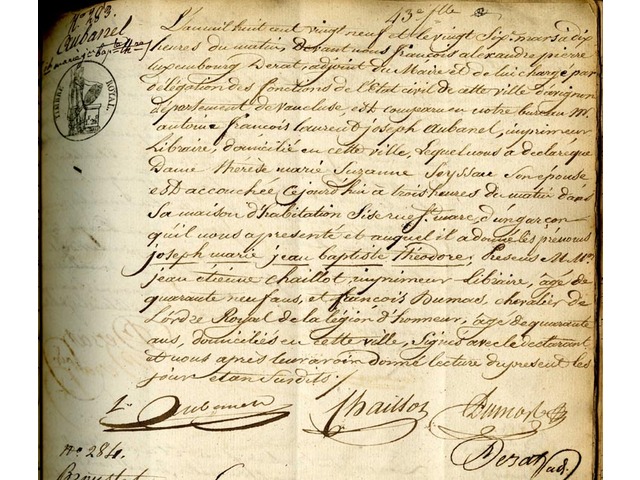 N.º 283.
Aubanel
TIMBRE ROYAL
43e flle
L'an mil huit cent vingt neuf et le vingt six mars à dix
heures du matin, Devant nous françois alexandre pierre
Luxembourg Dezat, adjoint du Maire et de lui chargé par
délégation des fonctions de l'Etat civil de cette ville d'avignon
département de vaucluse, est comparu en notre bureau M.
antoine françois laurent joseph Aubanel, imprimeur
Libraire, domicilié en cette ville, lequel nous a déclaré que
Dame thérèse marie Suzanne Seyssac son épouse
est accouchée cejourd'hui à trois heures du matin dans
sa maison d'habitation Sise rue st marc, d'un garçon
qu'il nous a présenté et auquel il a donné les prénoms
joseph marie jean baptiste théodore, Présens M. Mrs
jean étienne Chaillot, imprimeur Libraire, âgé de
quarante neuf ans, et françois Dumas, chevalier de
L'ordre Royal de la légion d'honneur, âgé de quarante
ans, domiciliés en cette ville, Signés avec le déclarant
et nous après leur avoir donné lecture du présent les
jour et an susdits /.
Ls Aubanel
Chaillot
Dumas
Dezat adj.
N.º 284.